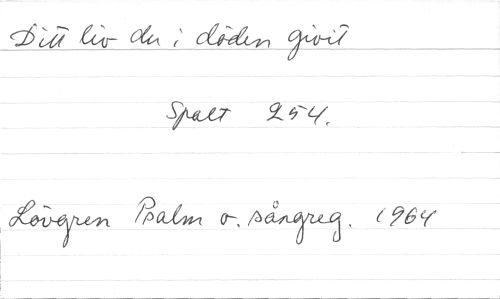 Ditt liv du i döden givit
Spalt 254.
Lövgren Psalm o. sångreg. 1964